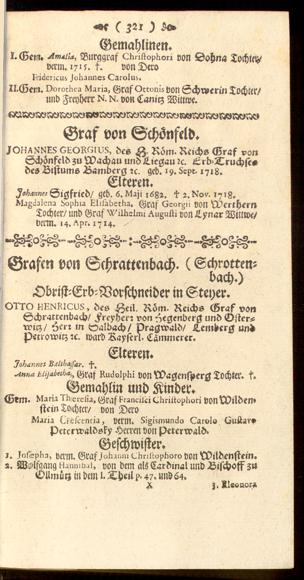 ( 321 )
Gemahlinen.
I. Gem. Amalia, Burggraf Christophori von Dohna Tochter/
verm. 1715. †. von Dero
Fridericus Johannes Carolus.
II. Gem. Dorothea Maria, Graf Ottonis von Schwerin Tochter/
und Freyherr N. N. von Canitz Wittwe.
Graf von Schönfeld.
JOHANNES GEORGIUS, des H. Röm. Reichs Graf von
Schönfeld zu Wachau und Liegau ꝛc. Erb-Truchses
des Bistums Bamberg ꝛc. geb. 19. Sept. 1718.
Elteren.
Johannes Sigfried/ geb. 6. Maji 1682. † 2. Nov. 1718.
Magdalena Sophia Elisabetha, Graf Georgii von Werthern
Tochter/ und Graf Wilhelmi Augusti von Lynar Wittwe/
verm. 14. Apr. 1714.
Grafen von Schrattenbach. (Schrotten-
bach.)
Obrist-Erb-Vorschneider in Steyer.
OTTO HENRICUS, des Heil. Röm. Reichs Graf von
Schrattenbach/ Freyherr von Hegenberg und Oster-
witz/ Herr in Salbach/ Pragwald/ Lemberg und
Petrowitz ꝛc. ward Kayserl. Cämmerer.
Elteren.
Johannes Balthasar. †.
Anna Elisabetha, Graf Rudolphi von Wagensperg Tochter. †.
Gemahlin und Kinder.
Gem. Maria Theresia, Graf Francisci Christophori von Wilden-
stein Tochter/ von Dero
Maria Crescentia, verm. Sigismundo Carolo Gustavo
Peterwaldsky Herren von Peterwald.
Geschwister.
1. Josepha, verm. Graf Johanni Christophoro von Wildenstein.
2. Wolfgang Hannibal, von dem als Cardinal und Bischoff zu
Ollmütz in dem I. Theil p. 47. und 64.
X 3. Eleonora